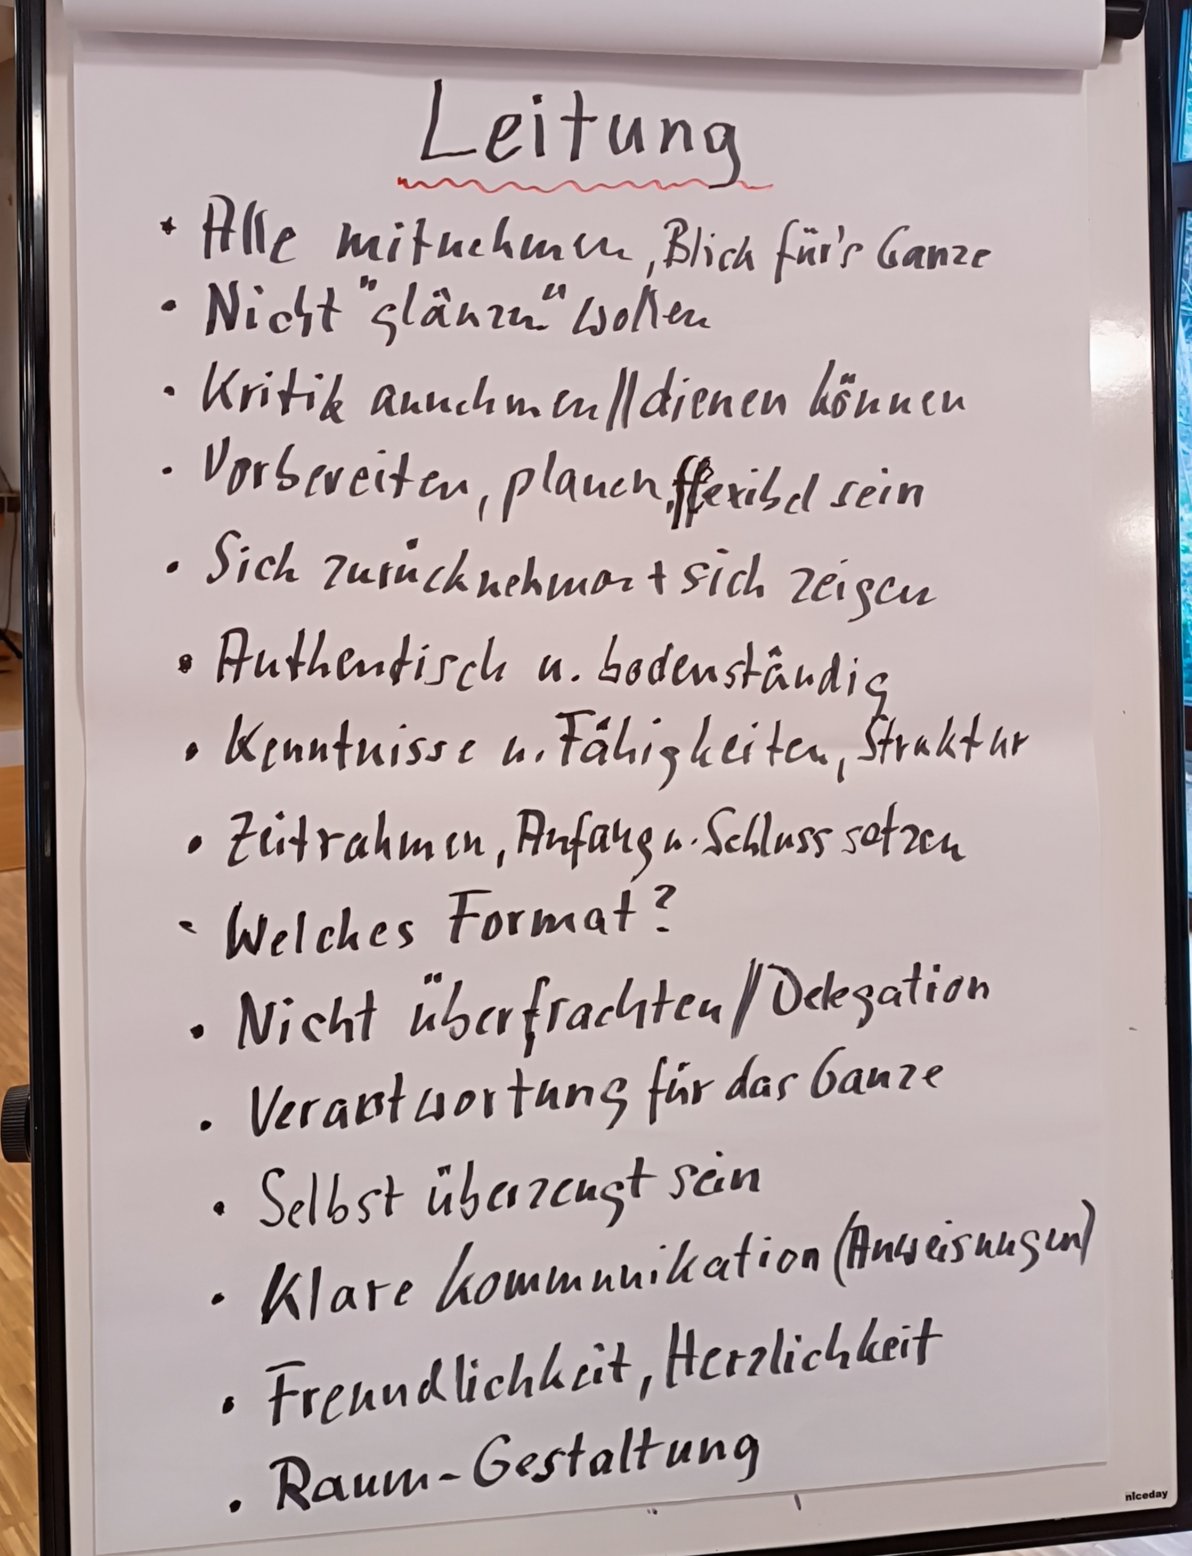 Leitung
* Alle mitnehmen, Blick für's Ganze
• Nicht "glänzen" wollen
• Kritik annehmen // dienen können
• Vorbereiten, planen, flexibel sein
• Sich zurücknehmen + sich zeigen
• Authentisch u. bodenständig
• Kenntnisse u. Fähigkeiten, Struktur
• Zeitrahmen, Anfang u. Schluss setzen
• Welches Format?
• Nicht überfrachten // Delegation
• Verantwortung für das Ganze
• Selbst überzeugt sein
• Klare Kommunikation (Anweisungen)
• Freundlichkeit, Herzlichkeit
• Raum-Gestaltung
niceday